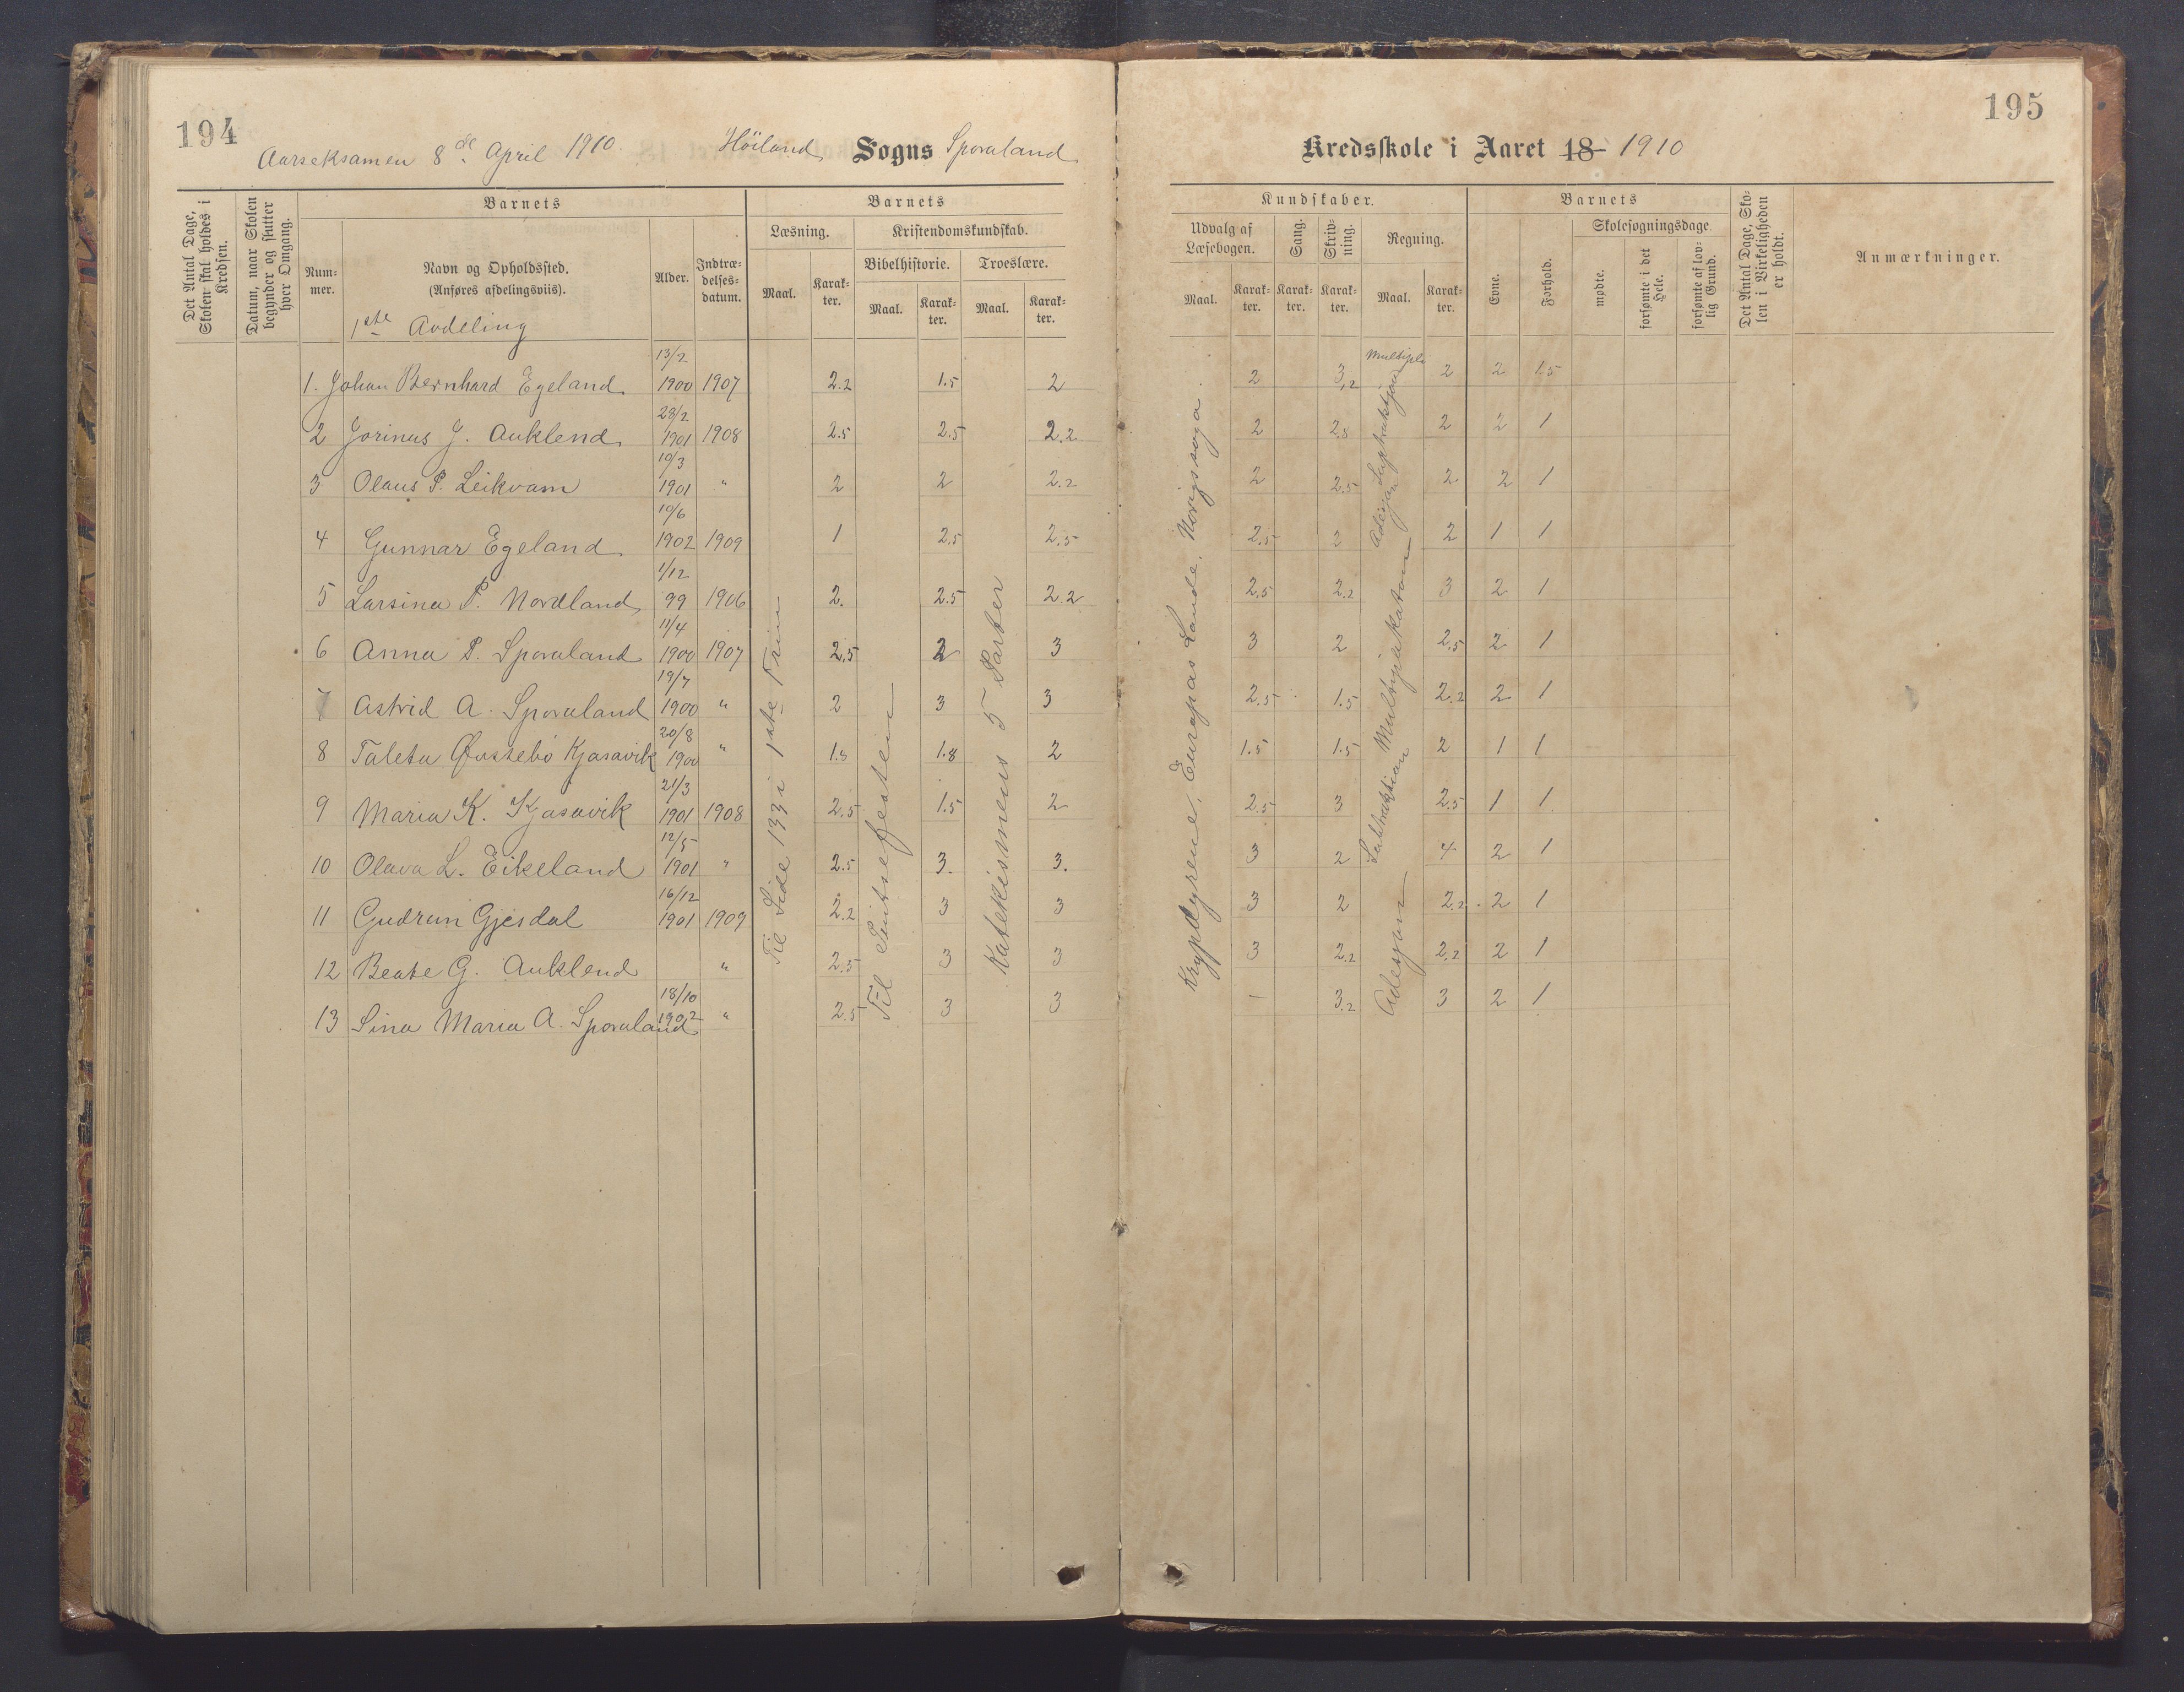 194
Aarseksamen 8de April 1910. Höiland Sogns Sporaland
Det Antal Dage, Skolen skal holdes i Kredsen.
Datum, naar Skolen begynder og slutter hver Omgang.
Barnets
Nummer.
Navn og Opholdssted.
(Anføres afdelingsviis).
Alder.
Indtrædelsesdatum.
Barnets
Læsning.
Maal.
Karakter.
Kristendomskundskab.
Bibelhistorie.
Maal.
Karakter.
Troeslære.
Maal.
Karakter.
1ste Avdeling
1. Johan Bernhard Egeland 13/2 1900 1907 2.2 1.5 2
2 Jorinus J. Auklend 23/2 1901 1908 2.5 2.5 2.2
3 Olaus P. Leikvam 10/3 1901 " 2 2 2.2
4 Gunnar Egeland 10/6 1902 1909 1 2.5 2.5
5 Larsina P. Nordland 1/12 99 1906 2. 2.5 2.2
6 Anna P. Sporaland 11/4 1900 1907 2.5 2 3
7 Astrid A. Sporaland 19/7 1900 " 2 3 3
8 Taleta Øvstebö Kjosavik 20/8 1900 " 1.8 1.8 2
9 Maria K. Kjosavik 21/3 1901 1908 2.5 1.5 2
10 Olava L. Eikeland 12/5 1901 " 2.5 3. 3.
11 Gudrun Gjesdal 16/12 1901 1909 2.2 3 3
12 Beate G. Auklend " 2.5 3 3
13 Sina Maria A. Sporaland 18/10 1902 " 2.5 3 3
Til Side 133 i 1ste Trin
Til Pintsefesten
Katekismens 5 Parter
195
Kredsskole i Aaret 18 1910
Kundskaber.
Udvalg af Læsebogen.
Maal.
Karakter.
Sang.
Karakter.
Skrivning.
Karakter.
Regning.
Maal.
Karakter.
Barnets
Evne.
Forhold.
Skolesøgningsdage.
mødte.
forsømte i det Hele.
forsømte af lovlig Grund.
Det Antal Dage, Skolen i Virkeligheden er holdt.
Anmærkninger.
2 3.2 2 2 1.5
2 2.8 2 2 1
2 2.5 2 2 1
2.5 2 2 1 1
2.5 2.2 3 2 1
3 2 2.5 2 1
2.5 1.5 2.2 2 1
1.5 1.5 2 1 1
2.5 3 2.5 1 1
3 2 4 2 1
3 2 2.2 2 1
3 2.2 2.2 2 1
1 3.2 3 2 1
Krypdyrene, Europas Lande, Norigssoga.
Adisjon Suptraktjon
Multiplikation
Subtraktion
Adisjon